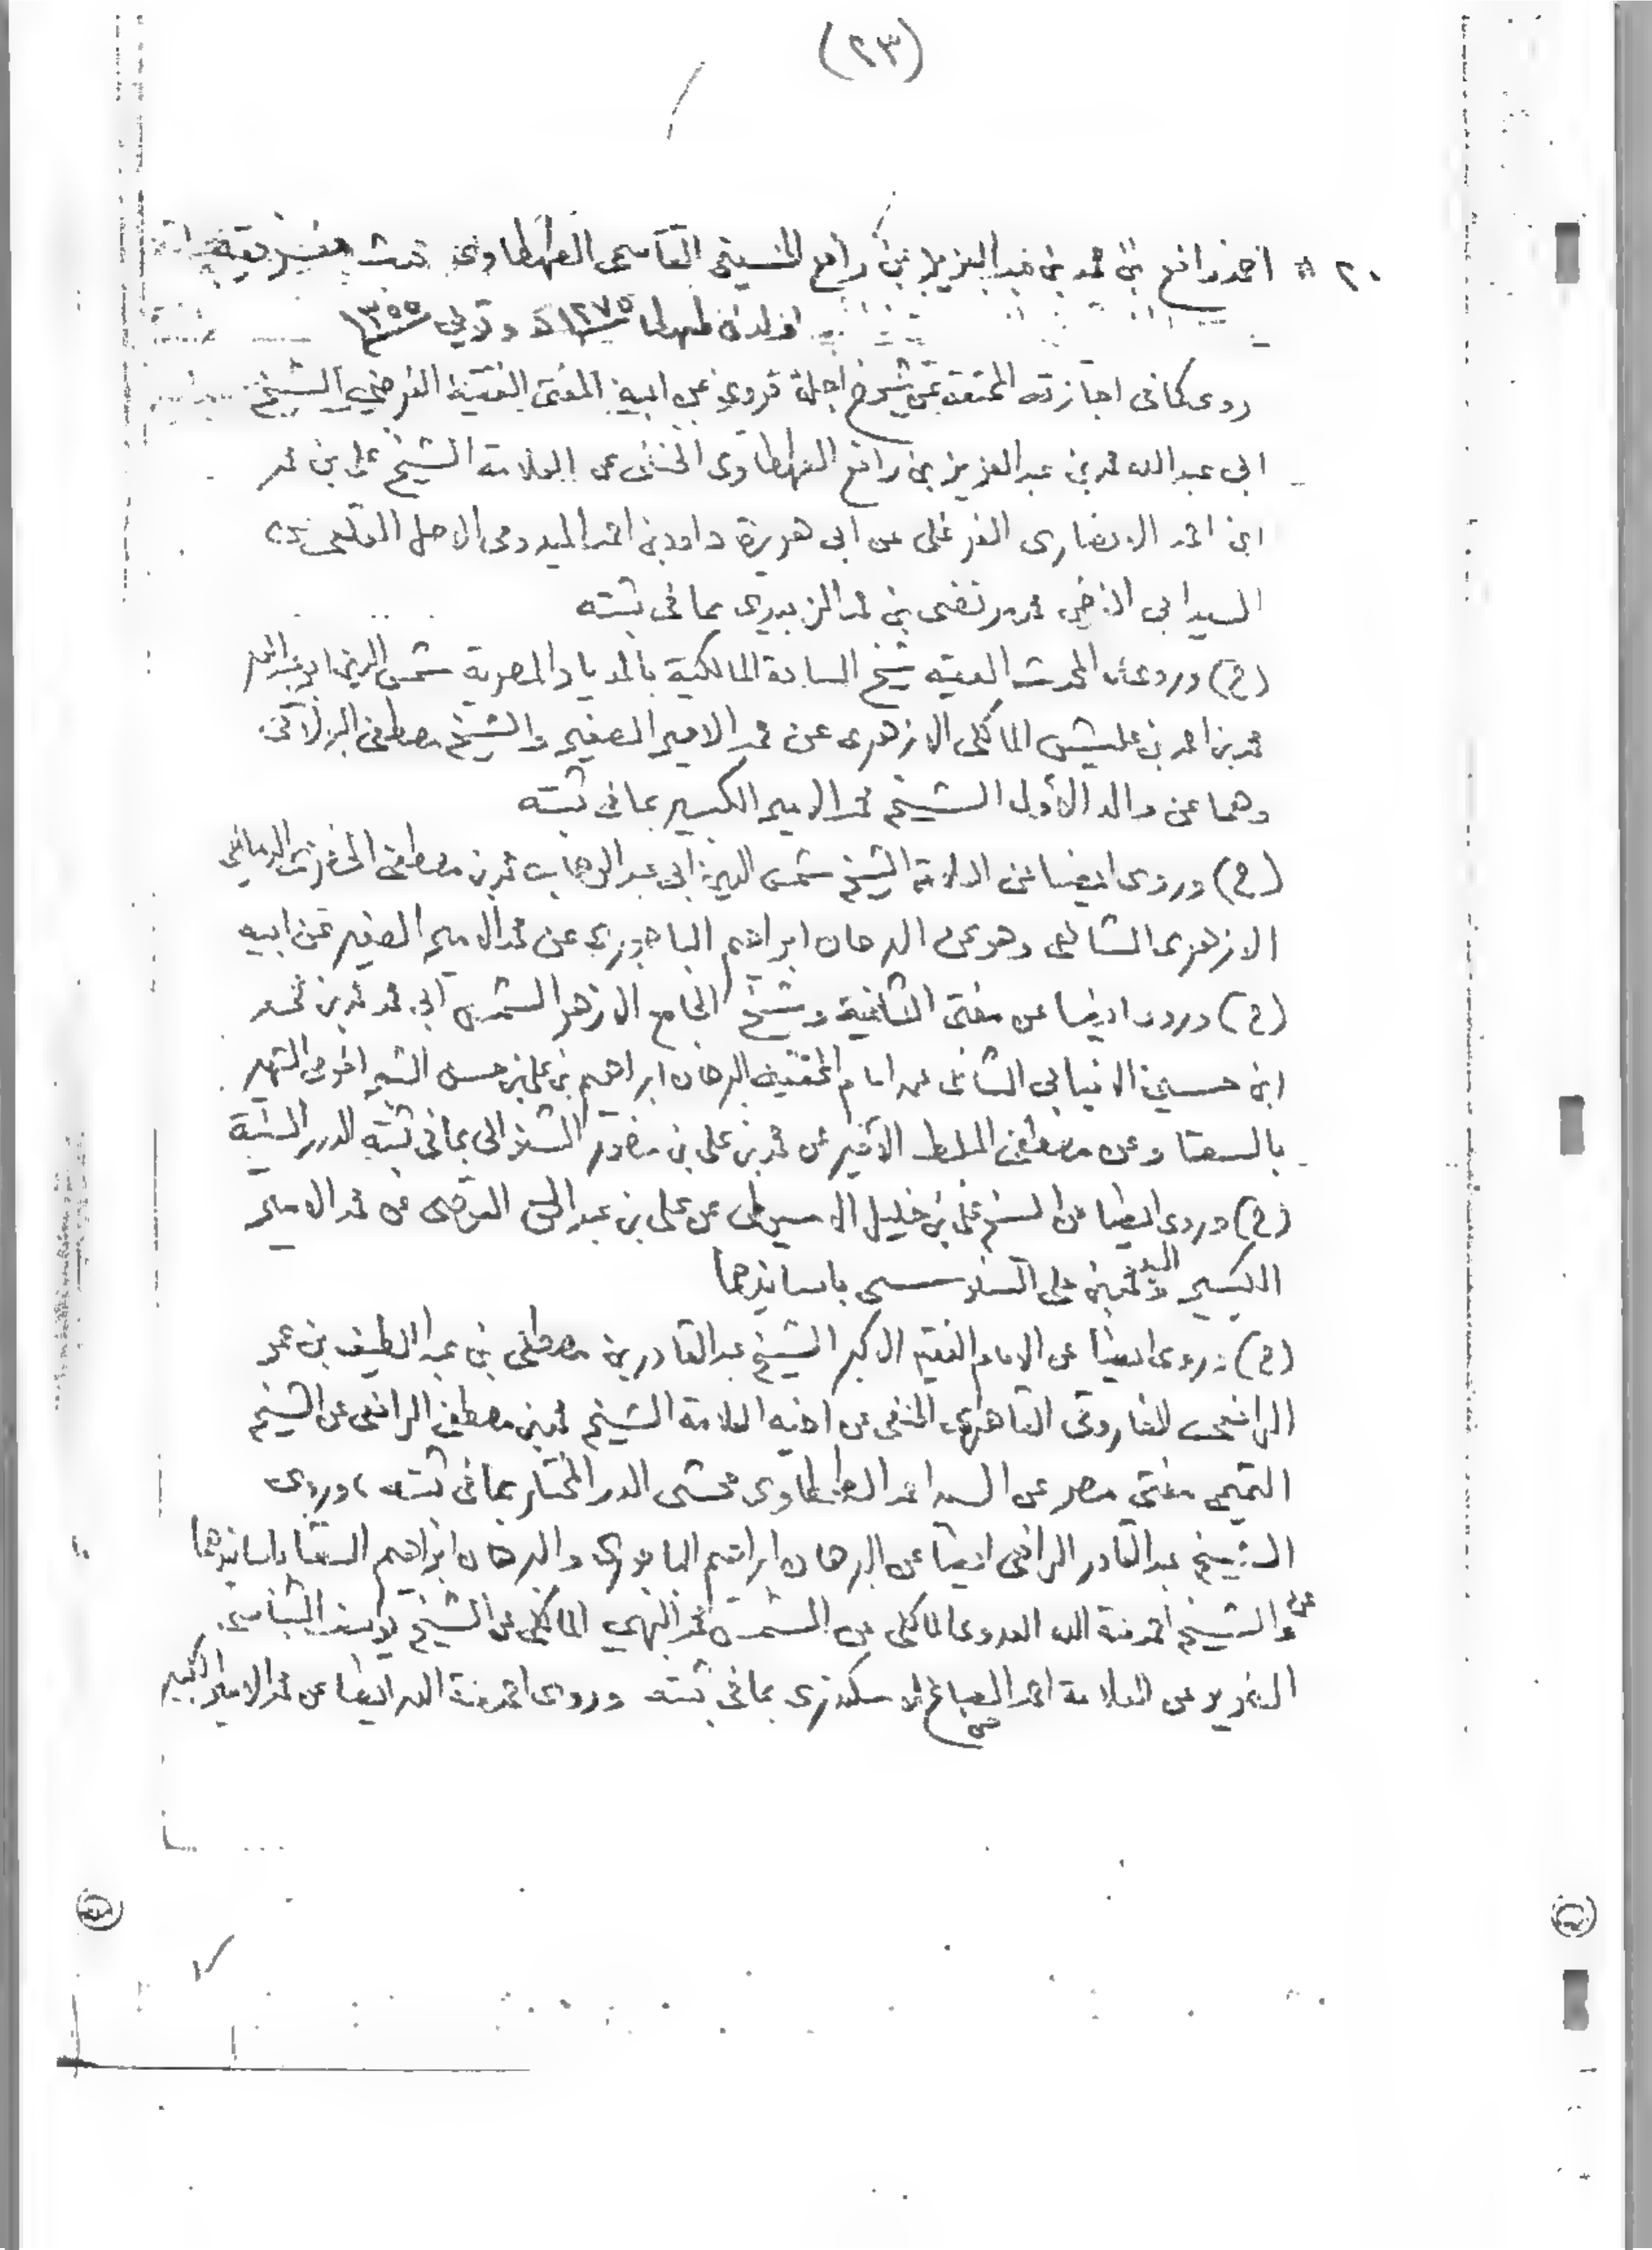 (٢٣)
٢٠ # احمد رافع بن محمد بن عبد العزيز بن رافع الحسيني القاسمي الطهطاوي
ولد في طهطا ١٢٧٥ وتوفي ١٣٥٥
روى كما في اجازته عن شيوخ اجلة فروى عن ابيه المفتي الفقيه الفرضي الشيخ
ابي عبد الله محمد بن عبد العزيز بن رافع الطهطاوي الحنفي عن العلامة الشيخ علي بن محمد
ابن احمد الانصاري الفرغلي عن ابي هريرة داود بن احمد الميدومي الاصل القلعي
السيد ابي الفيض محمد مرتضى بن محمد الزبيدي بما في ثبته
(ح) وروى عن المحدث الفقيه شيخ السادة المالكية بالديار المصرية شمس الدين ابي عبد الله
محمد بن احمد بن عليش المالكي الازهري عن محمد الامير الصغير والشيخ مصطفى البولاقي
وهما عن والد الأول الشيخ محمد الامير الكبير بما في ثبته
(ح) وروى ايضا عن العلامة الشيخ شمس الدين ابي عبد الوهاب محمد بن مصطفى الخضري الدمياطي
الازهري الشافعي وهو عن البرهان ابراهيم الباجوري عن محمد الامير الصغير عن ابيه
(ح) وروى ايضا عن مفتي الشافعية وشيخ الجامع الازهر الشمس ابي محمد محمد بن محمد
ابن حسين الانبابي الشافعي عن امام المحققين البرهان ابراهيم بن علي بن حسن الشهير
بالسقا وعن مصطفى المبلط الأخير عن محمد بن علي بن منصور الشنواني بما في ثبته الدرر السنية
(ح) وروى ايضا عن الشيخ علي بن خليل الاسيوطي عن علي بن عبد الحق القوصي عن محمد الامير
الكبير ومحمد بن علي السنوسي باسانيدهما
(ح) وروى ايضا عن الامام الفقيه الاكبر الشيخ عبد القادر بن مصطفى بن عبد اللطيف بن عمر
الرافعي الفاروقي القاهري الحنفي عن اخيه العلامة الشيخ محمد بن مصطفى الرافعي عن الشيخ
التميمي مفتي مصر عن السيد احمد الطحطاوي محشي الدر المختار بما في ثبته، وروى
الشيخ عبد القادر الرافعي ايضا عن البرهان ابراهيم الباجوري والبرهان ابراهيم السقا باسانيدهما
وعن الشيخ احمد منة الله العدوي المالكي عن الشمس محمد البهي المالكي عن الشيخ يوسف الشباسي
الضرير عن العلامة احمد الصباغ الاسكندري بما في ثبته وروى احمد منة الله ايضا عن محمد الامير الكبير